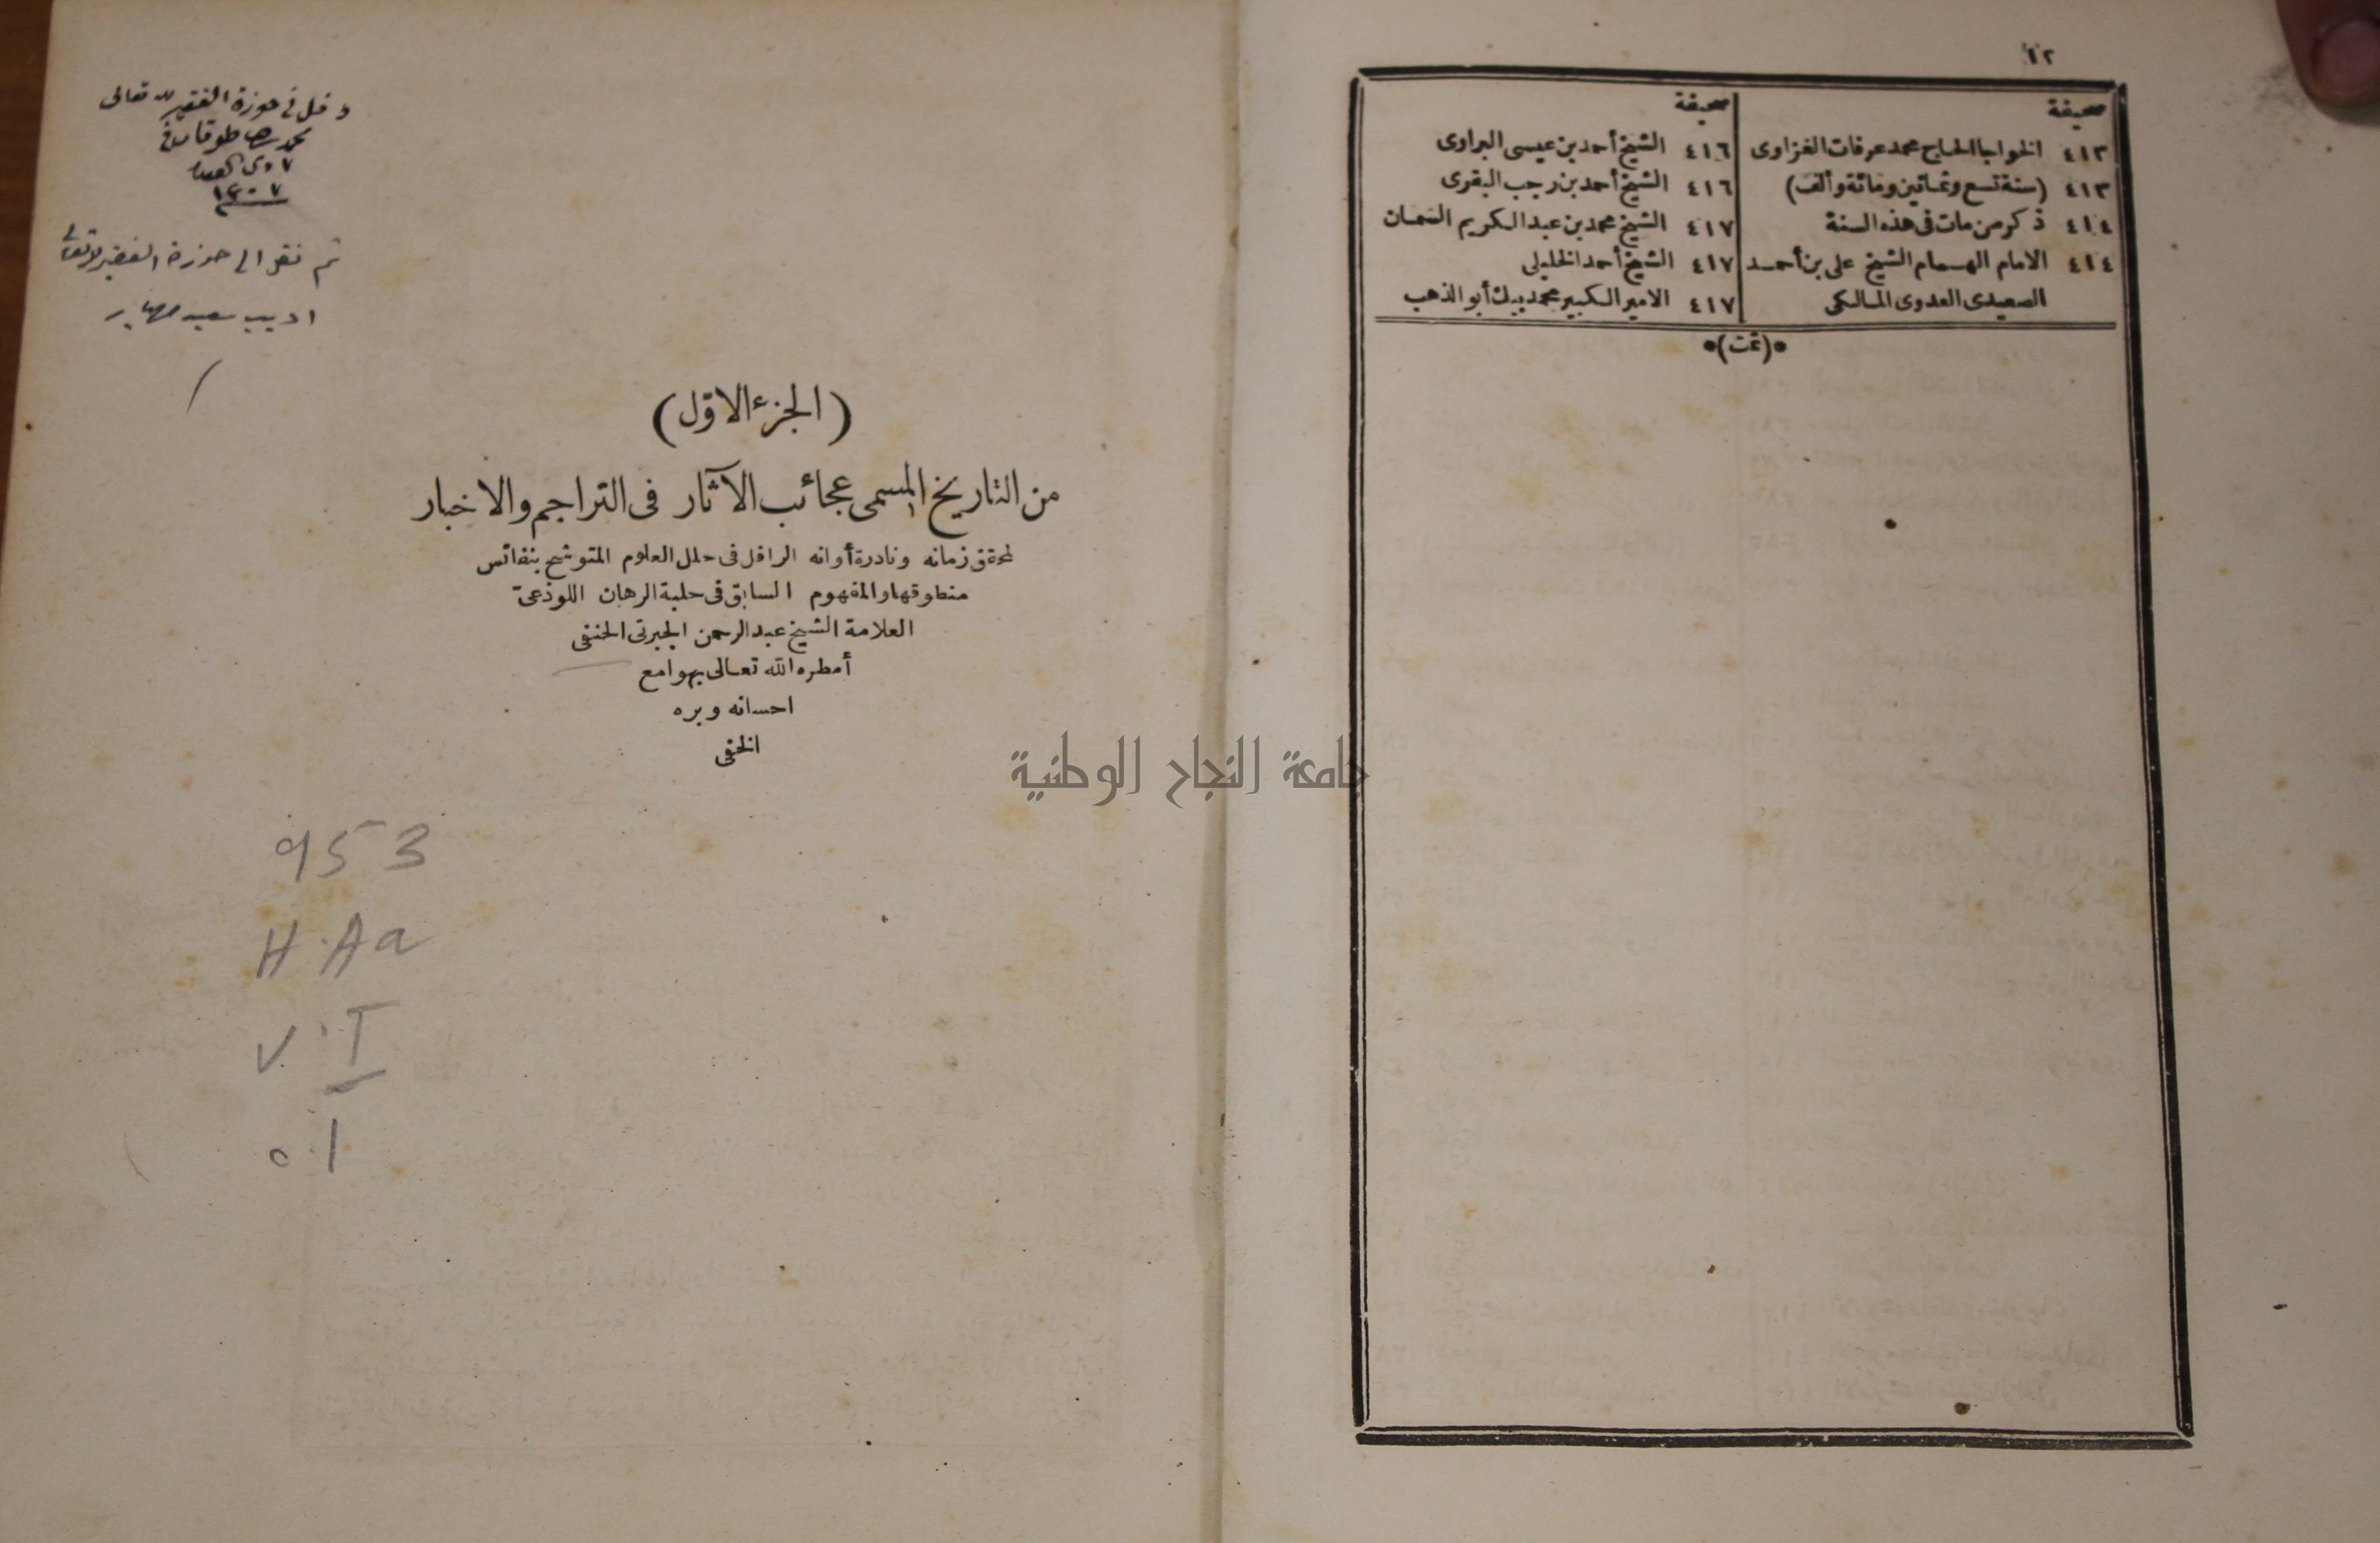 ١٢
صحيفة
٤١٣ الخواجا الحاج محمد عرفات الغزاوى
٤١٣ (سنة تسع وثمانين ومائة وألف)
٤١٤ ذكر من مات فى هذه السنة
٤١٤ الامام الهمام الشيخ على بن أحمد
الصعيدى العدوى المالكى
صحيفة
٤١٦ الشيخ أحمد بن عيسى البراوى
٤١٦ الشيخ أحمد بن رجب البقرى
٤١٧ الشيخ محمد بن عبد الكريم السمان
٤١٧ الشيخ أحمد الخليلى
٤١٧ الامير الكبير محمد بيك أبو الذهب
*(تمت)*
دخل في حوزة الفقير لله تعالى
محمد طوقان
٧ ذي القعدة
١٣٠٧
ثم نقل الى حوزة الفقير لله تعالى
اديب سعيد مهيار
(الجزء الاوّل)
من التاريخ المسمى عجائب الآثار فى التراجم والاخبار
لمحقق زمانه ونادرة أوانه الرافل فى حلل العلوم المتوشح بنفائس
منطوقها والمفهوم السابق فى حلبة الرهان اللوذعىّ
العلامة الشيخ عبد الرحمن الجبرتى الحنفى
أمطره الله تعالى بهوامع
احسانه وبره
الخفى
953
H.Aa
V.I
0.1
جامعة النجاح الوطنية